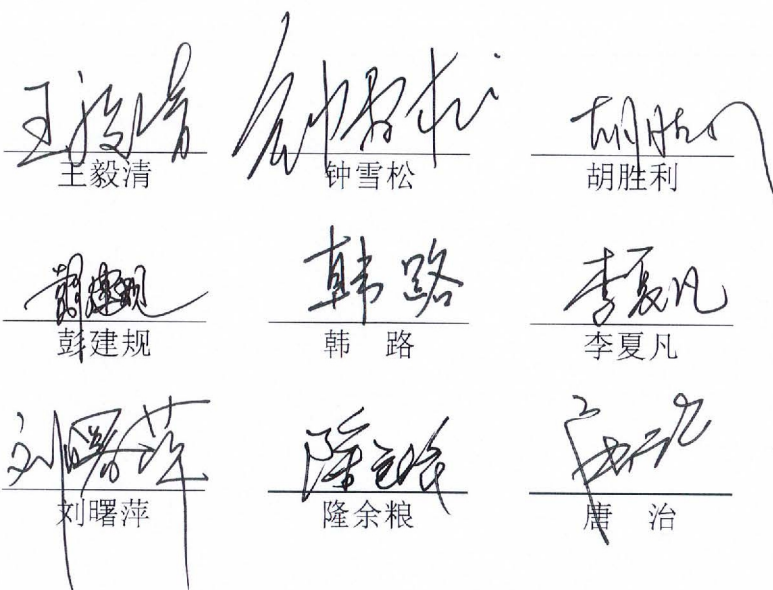 王毅清 钟雪松 胡胜利
王毅清 钟雪松 胡胜利
彭建规 韩路 李夏凡
彭建规 韩 路 李夏凡
刘曙萍
刘曙萍 隆余粮 唐 治